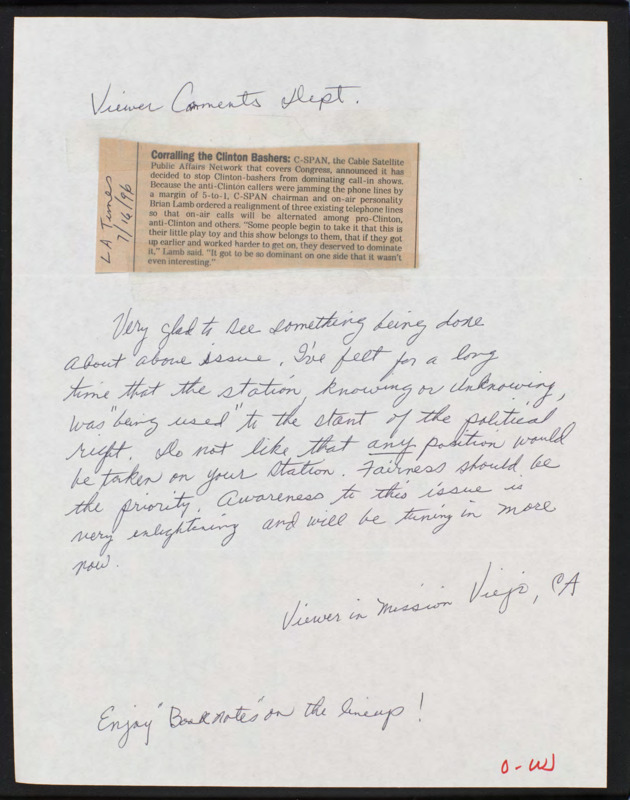 Viewer Comments Dept.
LA Times
7/16/96
Corralling the Clinton Bashers: C-SPAN, the Cable Satellite
Public Affairs Network that covers Congress, announced it has
decided to stop Clinton-bashers from dominating call-in shows.
Because the anti-Clinton callers were jamming the phone lines by
a margin of 5-to-1, C-SPAN chairman and on-air personality
Brian Lamb ordered a realignment of three existing telephone lines
so that on-air calls will be alternated among pro-Clinton,
anti-Clinton and others. "Some people begin to take it that this is
their little play toy and this show belongs to them, that if they got
up earlier and worked harder to get on, they deserved to dominate
it," Lamb said. "It got to be so dominant on one side that it wasn't
even interesting."
Very glad to see something being done
about above issue. I've felt for a long
time that the station, knowing or unknowing,
was "being used" to the slant of the political
right. Do not like that any position would
be taken on your station. Fairness should be
the priority. Awareness to this issue is
very enlightining and will be tuning in more
now.
Viewer in Mission Viejo, CA
Enjoy "Booknotes" on the lineup!